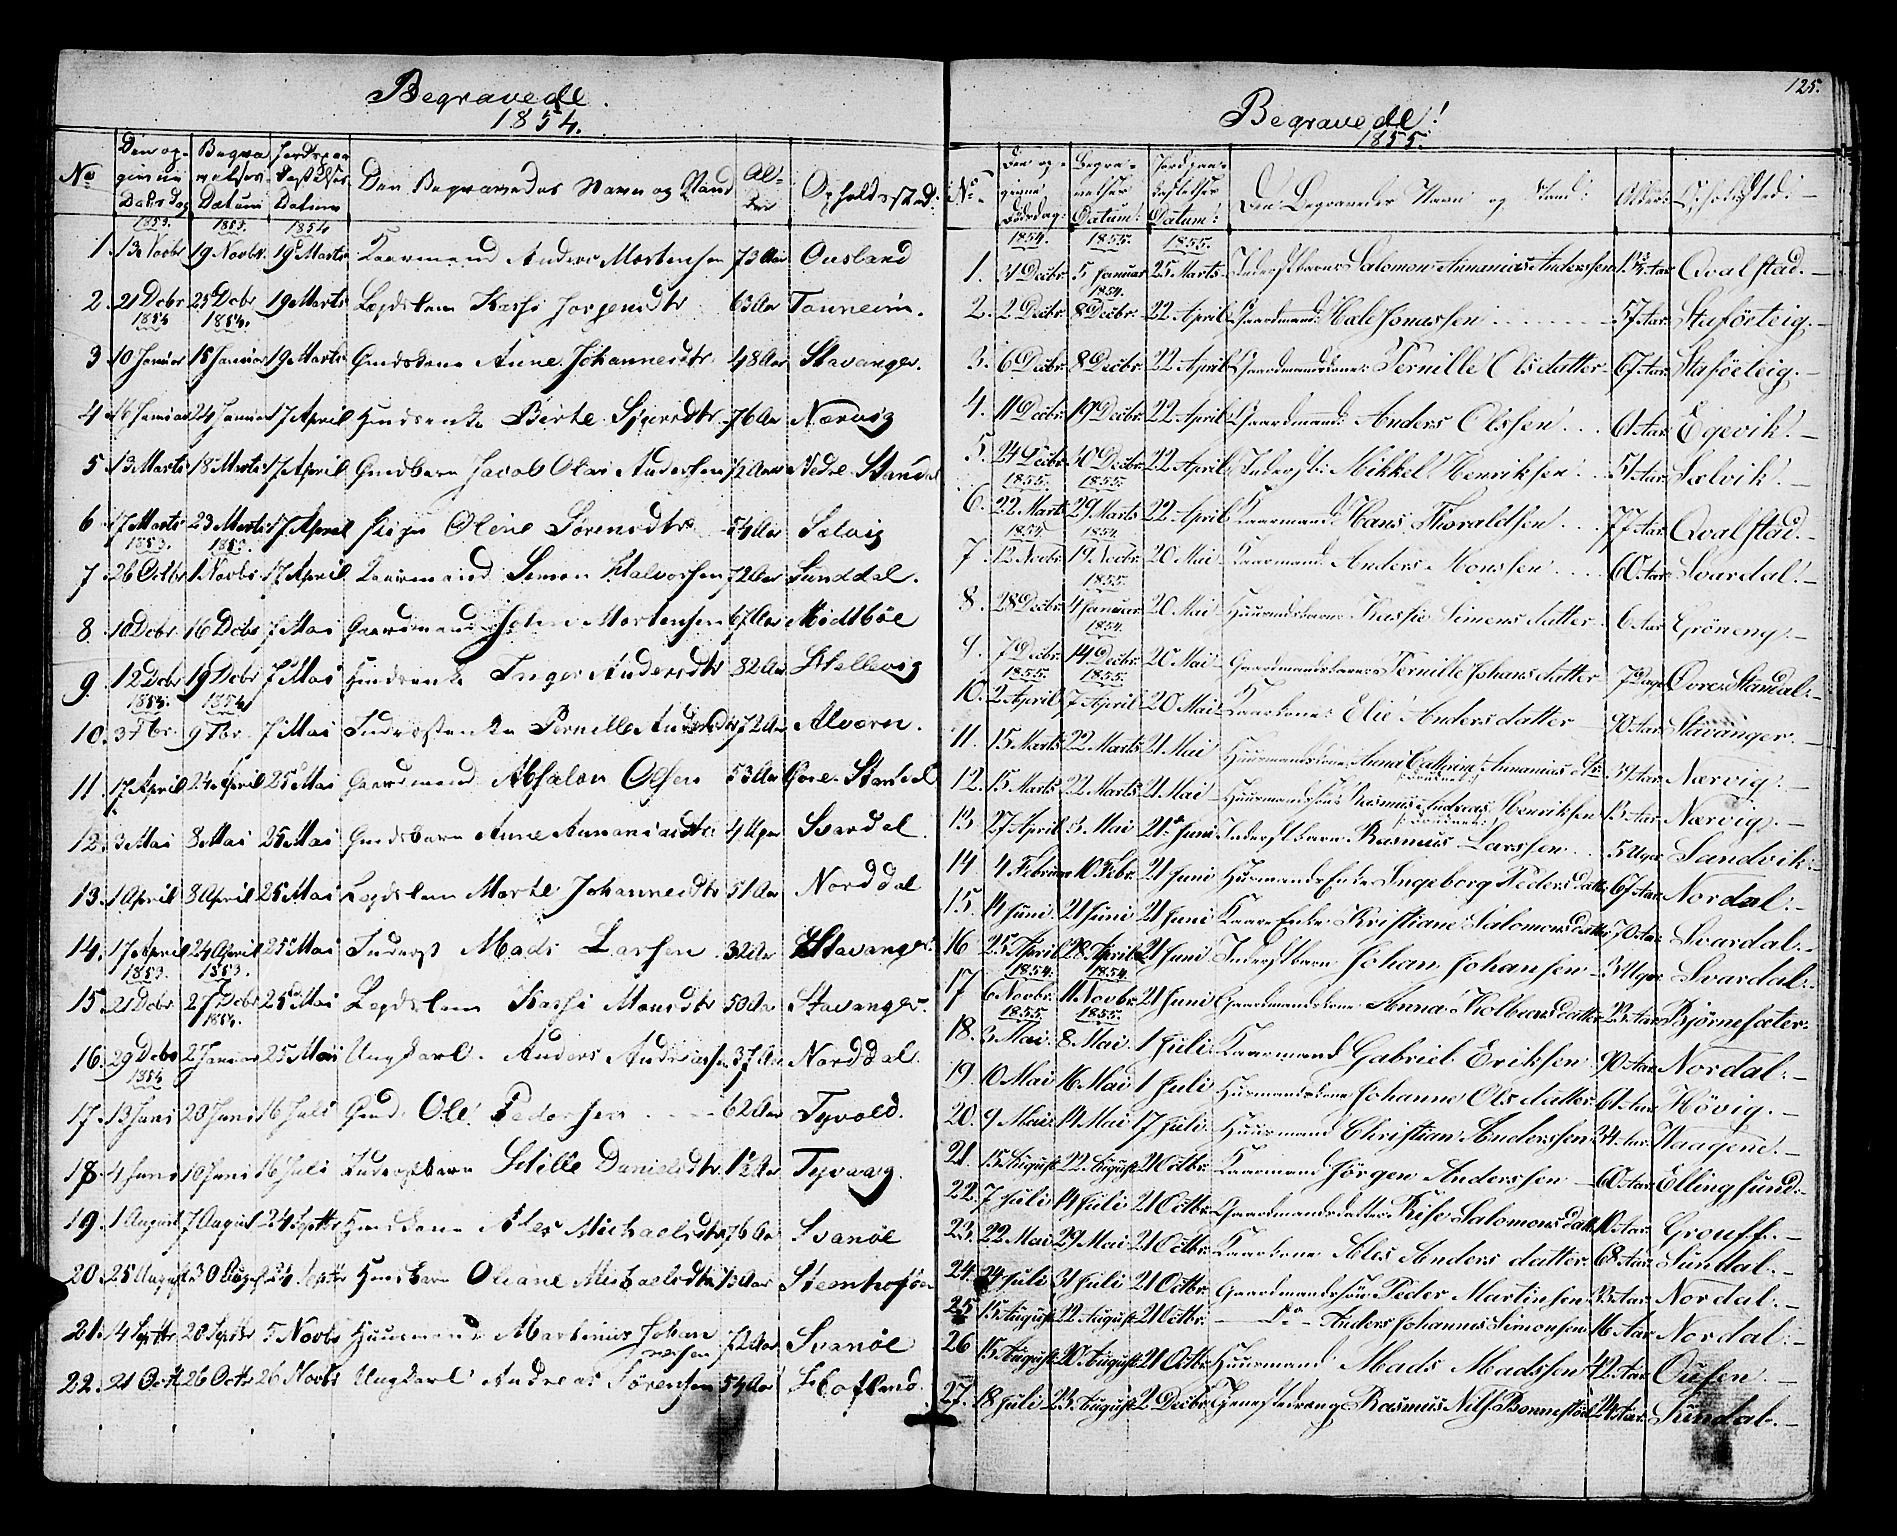 Begravede.
1854.
No
Den op-
givne
Dødsdag
Begra
velses
Datum
Jordspaa
kastelses
Datum
Den Begravedes Navn og Stand
Al-
der
Opholdssted.
1853. 1853. 1854
1. 13 Novbr 19 Novbr. 19 Marts Kaarmand Anders Mortensen 73 Aar Ousland
2. 21 Dcbr 25 Dcbr 19 Marts Lægdslem Kasti Jørgensdtr 65 Aar Tonneim.
1854 1854.
3 10 Januar 15 Januar 19 Marts Anne Johannesdtr 48 Aar Stavanger.
4 16 Januar 24 Januar 17 April Huusenke Berte Sjursdtr 76 Aar Nærvig
5 13 Marts 18 Marts 17 April Jacob Olai Andersen 12 Aar Nedre Standal
6 17 Marts 23 Marts 17 April Pige Oline Sørensdtr 54 Aar Selvig
1853. 1853.
7. 26 Octbr 1 Novbr 17 April Kaarmand Simon Halvorsen 72 Aar Sunddal.
8. 10 Dcbr 16 Dcbr 7 Mai Gaardmand John Mortensen 67 Aar Midtbøe
9. 12 Dcbr 19 Dcbr 7 Mai Huusenke Inger Andersdtr 82 Aar Hellevig
1854. 1854
10. 3 Fbr. 9 Fbr. 7 Mai Inderstenke Pernille Andersdtr 72 Aar Alvøren.
11. 17 April 24 April 25 Mai Gaardmand Absalon Olsen 53 Aar Øvre Standal
12. 3 Mai 8 Mai 25 Mai Anne Annaniasdtr 4 Uger Svardal
13. 1 April 8 April 25 Mai Lægdslem Marte Johannesdtr 51 Aar Norddal
14. 17 April 24 April 25 Mai Inderst Mads Larsen 32 Aar Stavanger
1853. 1853.
15. 21 Dcbr 27 Dcbr 25 Mai Lægdslem Kasti Monsdtr 50 Aar Stavanger.
1854.
16. 29 Dcbr 2 Januar 25 Mai Ungkarl. Anders Andreassen 37 Aar Norddal.
1854
17. 13 Juni 20 Juni 16 Juli Ole Pedersen 62 Aar Tyvold.
18. 4 Juni 10 Juni 16 Juli Inderstbarn Sille Danielsdtr 1½ Aar Tyvaag.
19. 1 August 7 August 24 Septbr Ales Michaelsdtr 76 Aar Svanøe
20. 25 August 30 August 24 Septbr Oliane Michaelsdtr Aar
21. 4 Septbr 20 Septbr 5 Novbr Huusmand Martinus Johan
nesen 72 Aar Svanøe
22. 21 Octbr 26 Octbr 26 Novbr Ungkarl Andreas Sørensen 54 Aar Hofland.
125.
Begravede!
1855.
No.
Den op-
givne
Dødsdag.
Begra-
velses
Datum!
Jordpaa-
kastelses
Datum!
Den Begravedes Navn og Stand:
Alder:
Opholdsted:
1854. 1855. 1855.
1. 31 Decbr. 5 Januar 25 Marts Inderstbarn: Salomon Annanias Anderssen Aar Qvalstad.
1854.
2. 2 Decbr. 8 Decbr. 22 April Gaardmand: Hale Jonassen 57 Aar. Staføeteig.
3. 6 Decbr. 8 Decbr. 22 April Gaardmandskone: Pernille Olsdatter 67 Aar. Staføeteig.
4. 11 Decbr. 19 Decbr. 22 April Gaardmand: Anders Olssen 61 Aar. Egevik.
5. 24 Decbr. 30 Decbr. 22 April Inderst: Mikkel Henriksen 51 Aar. Selvik.
1855. 1855.
6. 22 Marts 29 Marts 22 April Kaarmand Hans Thoraldsen 77 Aar Qvalstad.
1854. 1854.
7. 12 Novbr. 19 Novbr. 20 Mai Kaarmand: Anders Monssen 60 Aar. Svardal.
1855.
8. 28 Decbr. 4 Januar 20 Mai Huusmandsbarn: Kastie Simensdatter 6 Aar Grøneng.
1854.
9. 7 Decbr. 14 Decbr. 20 Mai Gaardmandsbarn: Pernille Johansdatter 7 Dage Øvre Standal.
1855. 1855.
10. 2 April 7 April 20 Mai Kaarkone: Elie Andersdatter 90 Aar Stavanger.
11. 15 Marts 22 Marts 21 Mai Anna Cathrina Annanias Dtr. 34 Aar. Nærvig.
12. 15 Marts 22 Marts 21 Mai Rasmus Andreas Henriksen 13 Aar. Nærvig.
13 27 April 3 Mai 21 Juni Inderstbarn Rasmus Larssen 5 Uger Sandvik.
14 4 Februar 10 Febr. 21 Juni Huusmands Enke Ingeborg Pedersdatter 67 Aar Nordal.
15. 14 Juni 21 Juni 21 Juni Kaar Enke Kristiane Salomonsdatter 70 Aar Svardal.
16 25 April 28 April 21 Juni Inderstbarn Johan Johansen 3 Uger Svardal.
1854. 1854.
17 6 Novbr. 11 Novbr. 21 Juni Gaardmandskone Anna Kolbeensdatter 23 Aar Bjørnesæter.
1855. 1855.
18. 3 Mai 8 Mai 1 Juli Kaarmand Gabriel Eriksen 90 Aar. Nordal.
19. 10 Mai 16 Mai 1 Juli Huusmandskone Johanne Olsdatter 61 Aar. Høvig.
20. 9 Mai 14 Mai 17 Juli. Huusmand Christian Anderssen 34 Aar. Waagene.
21. 15 August 22 August 21 Octbr. Kaarmand Jørgen Anderssen 60 Aar. Ellingsund.
22. 7 Juli 14 Juli 21 Octbr. Gaardmandsdatter Salomonsdatter 10 Aar
23. 22 Mai 29 Mai 21 Octbr. Kaarkone Ales Andersdatter 68 Aar. Sundal.
24. 24 Juli 31 Juli 21 Octbr. Gaardmandssøn Peder Martinsen 23 Aar. Nordal.
25 15 August 22 August 21 Octbr. Do Anders Johannes Simonsen 16 Aar Nordal.
26 15 August 20 August 21 Octbr. Huusmand Mads Madssen 42 Aar. Ousen.
27. 18 Juli 23 August 2 Decbr. Rasmus Nils 24 Aar Sundal.